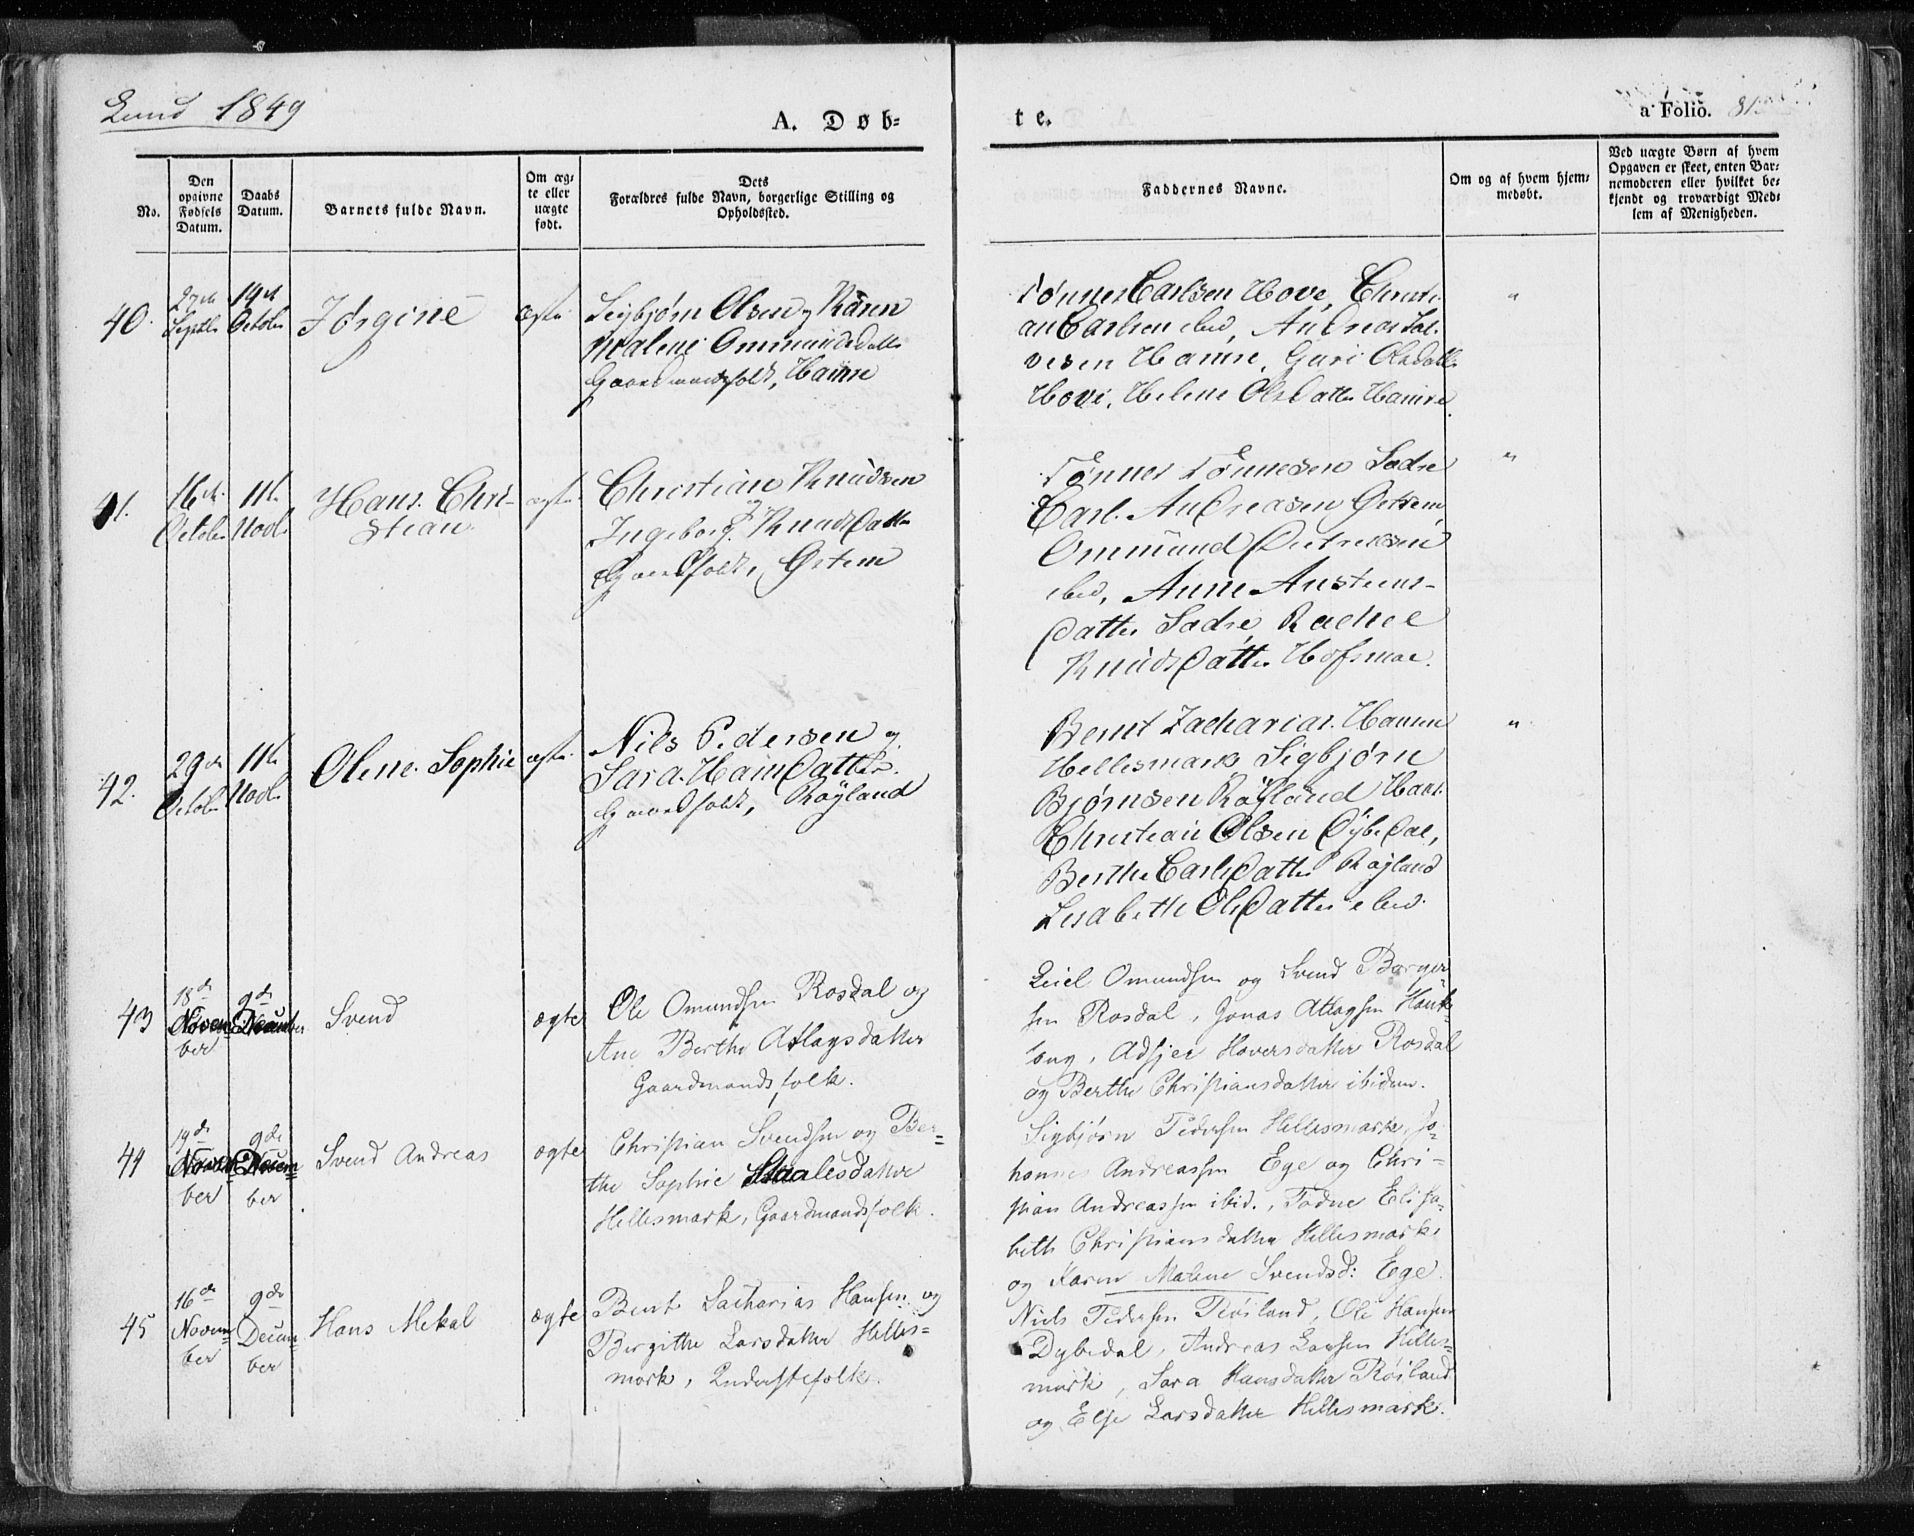 Lund 1849
A. Døb-
te.
a Folio. 81
No.
Den
opgivne
Fødsels
Datum.
Daabs
Datum.
Barnets fulde Navn.
Om æg-
te eller
uægte
født.
Dets
Forældres fulde Navn, borgerlige Stilling og
Opholdssted.
Faddernes Navne.
Om og af hvem hjem-
medøbt.
Ved uægte Børn af hvem
Opgaven er skeet, enten Bar-
nemoderen eller hvilket be-
kjendt og troværdigt Med-
lem af Menigheden.
40.
27de
Septbr
14de
Octobr
Jørgine
ægte
Sigbjørn Olsen og Karen
Malene Ommundsdatter
Gaardmandsfolk, Hamre
Tønnes Carlsen Hove, Christi-
an Carlsen ibid, Andreas Sal-
vesen Hamre, Guri Olsdatter
Hove, Helene Olsdatter Hamre
"
41.
16de
Octobr
11te
Novbr
Hans Chri-
stian
ægte
Christian Knudsen
og
Ingeborg Knudsdatter
Gaardfolk, Østem
Tønnes Tønnesen Sadre
Carl Andreasen Østrem
Ommund Pedersen
ibid, Anne Austens-
datter Sadre Rachel
Knudsdatter Hofsmoe.
"
42.
29de
Octobr
11te
Novbr
Olene Sophie
ægte
Nils Pedersen og
Sara Hansdatter
Gaardfolk, Røyland
Bernt Zacharias Hansen
Hellesmark Sigbjørn
Bjørnsen Røyland Hans
Christian Olsen Dybedal,
Berthe Carlsdatter Røyland
Lisabeth Olsdatter ibid.
"
43
18de
Novem-
ber
9de
December
Svend
ægte
Ole Omundsen Rosdal og
Ane Berthe Atlagsdatter
Gaardmandsfolk.
Eiel Omundsen og Svend Børger-
sen Rosdal, Jonas Atlagsen Hauk-
land, Adsjer Haversdatter Rosdal
og Berthe Christiansdatter ibidem.
44
19de
Novem-
ber
9de
Decem-
ber
Svend Andreas
ægte
Christian Svendsen og Ber-
the Sophie Staalesdatter
Hellesmark, Gaardmandsfolk.
Sigbjørn Pedersen Hellesmark, Jo-
hannes Andreassen Ege og Chri-
stian Andreassen ibid., Todne Elisa-
beth Christiansdatter Hellesmark
og Karen Malene Svendsd: Ege.
45
16de
Novem-
ber
9de
Decem-
ber
Hans Mekal
ægte
Bent Sacharias Hansen og
Birgithe Larsdatter Helles-
mark, Inderstefolk.
Niels Pedersen Røiland, Ole Hansen
Dybedal, Andreas Larsen Helles-
mark, Sara Hansdatter Røiland
og Else Larsdatter Hellesmark.